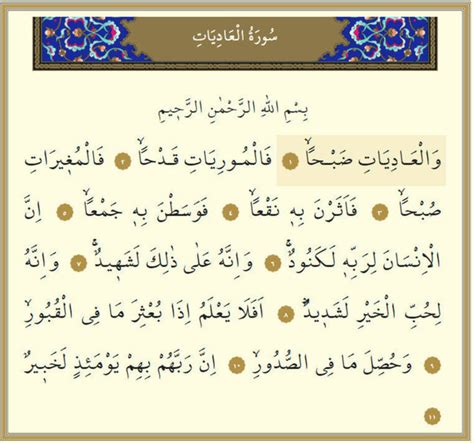 سُورَةُ الْعَادِيَاتِ
بِسْمِ اللهِ الرَّحْمٰنِ الرَّح۪يمِ
وَالْعَادِيَاتِ ضَبْحاًۙ ١ فَالْمُورِيَاتِ قَدْحاًۙ ٢ فَالْمُغ۪يرَاتِ
صُبْحاًۙ ٣ فَاَثَرْنَ بِه۪ نَقْعاًۙ ٤ فَوَسَطْنَ بِه۪ جَمْعاًۙ ٥ اِنَّ
الْاِنْسَانَ لِرَبِّه۪ لَكَنُودٌۚ ٦ وَاِنَّهُ عَلٰى ذٰلِكَ لَشَه۪يدٌۚ ٧ وَاِنَّهُ
لِحُبِّ الْخَيْرِ لَشَد۪يدٌۜ ٨ اَفَلَا يَعْلَمُ اِذَا بُعْثِرَ مَا فِي الْقُبُورِۙ
٩ وَحُصِّلَ مَا فِي الصُّدُورِۙ ١٠ اِنَّ رَبَّهُمْ بِهِمْ يَوْمَئِذٍ لَخَب۪يرٌ
١١